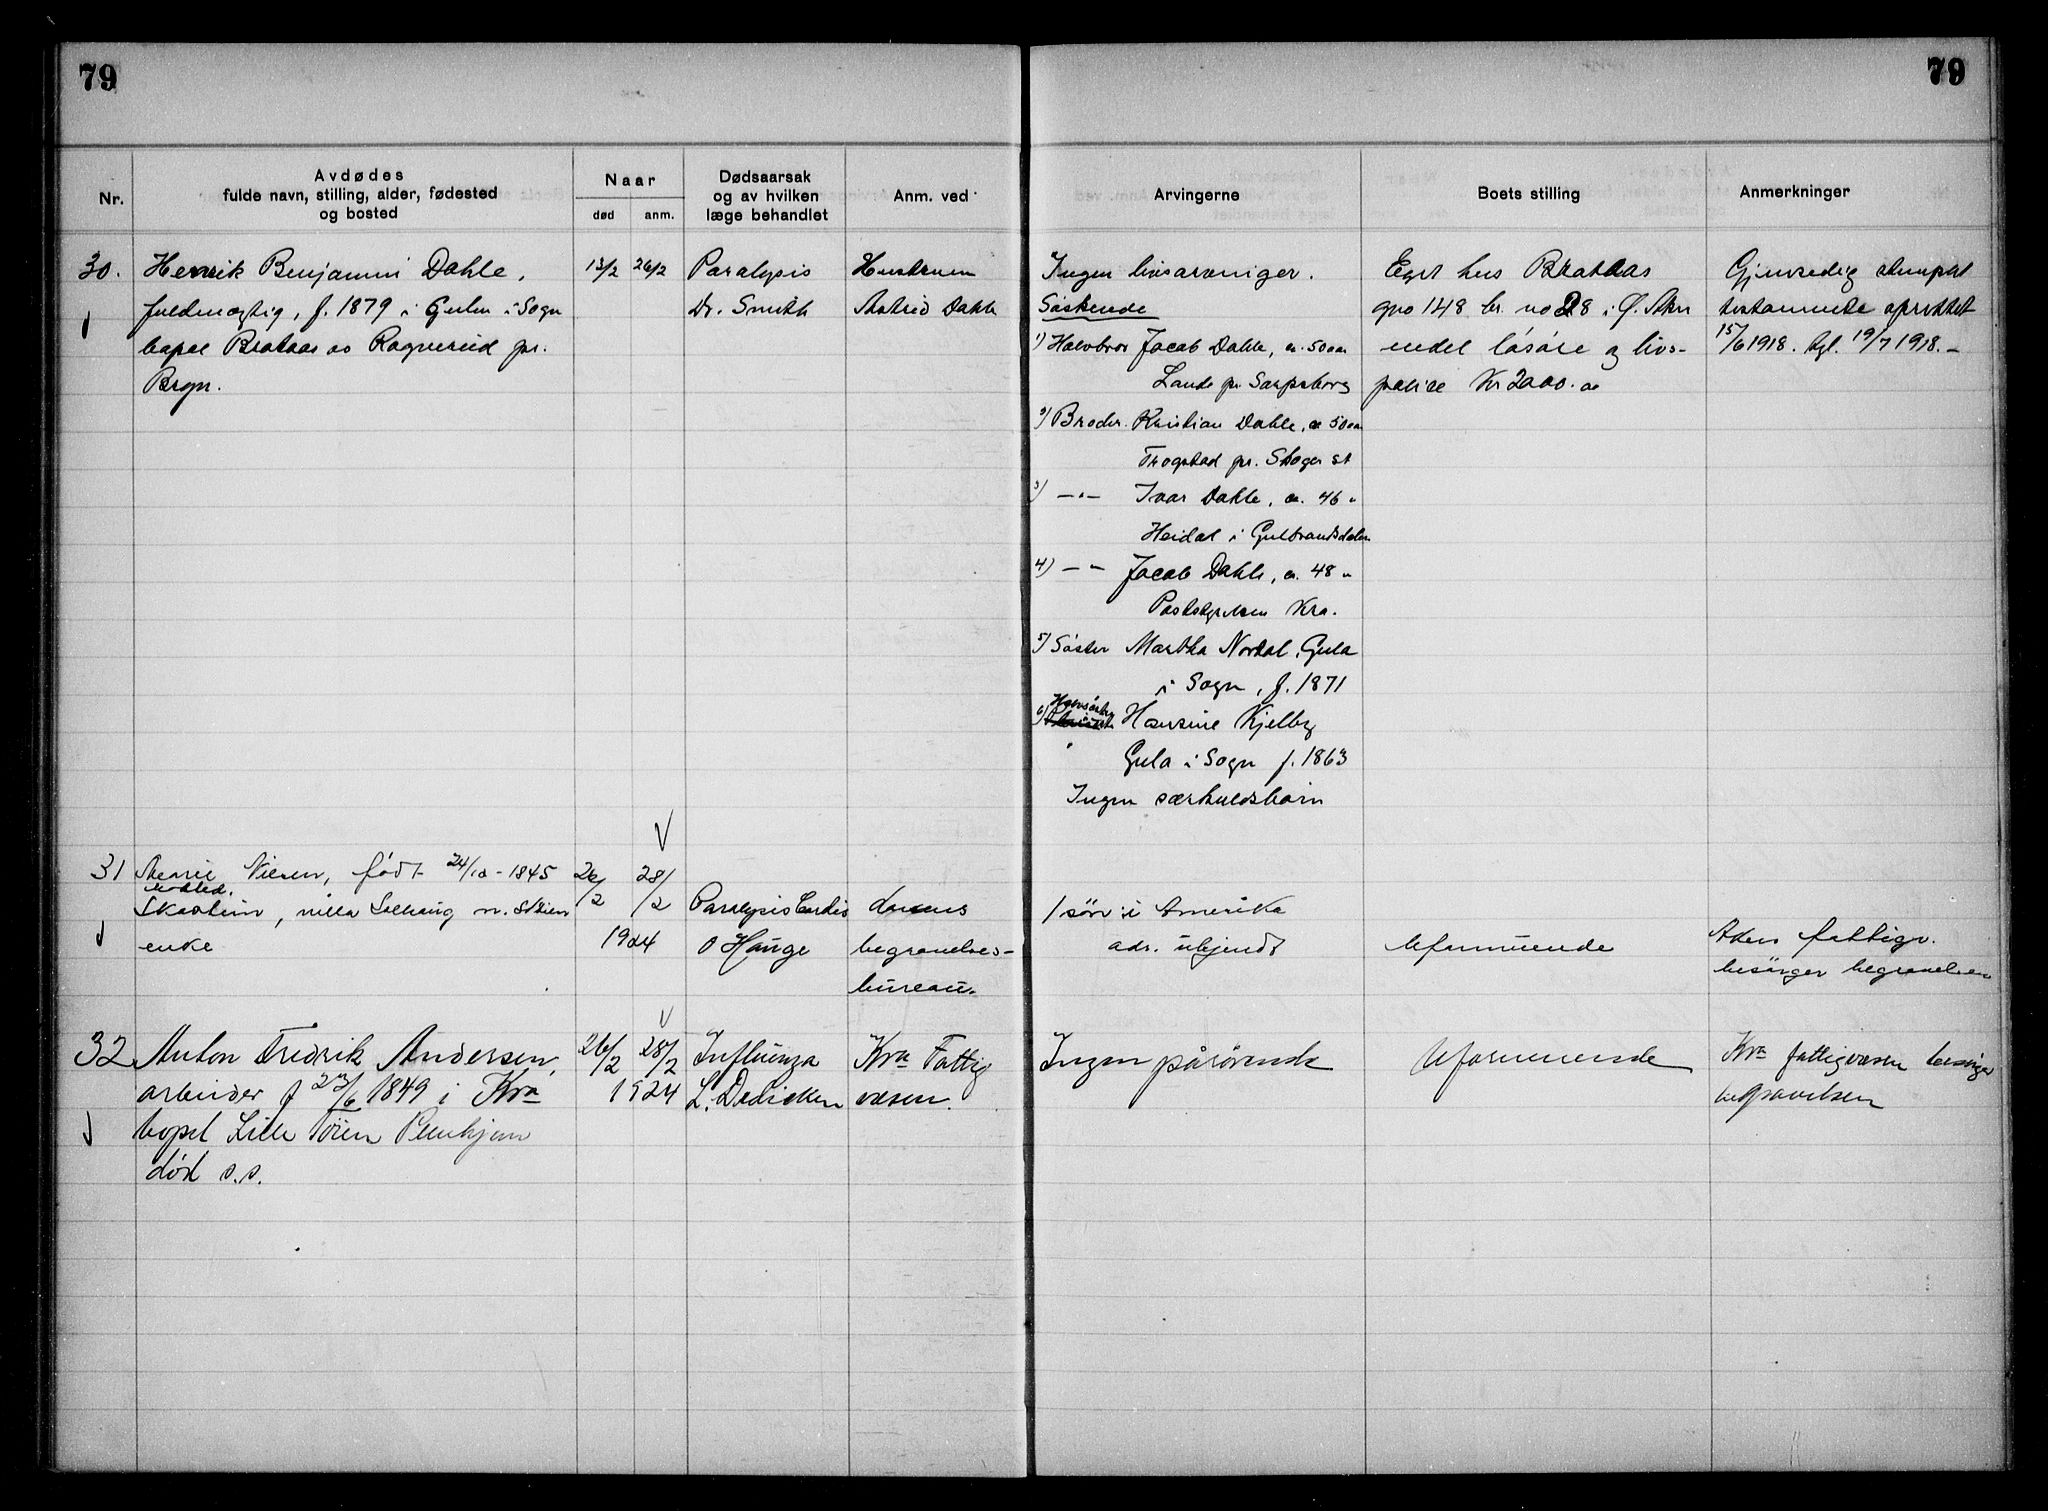 79
79
Nr.
Avdødes
fulde navn, stilling, alder, fødested
og bosted
Naar
død
anm.
Dødsaarsak
og av hvilken
læge behandlet
Anm. ved
Arvingerne
Boets stilling
Anmerkninger
30.
Henrik Benjamin Dahle,
fuldmægtig, f. 1879 i Gulen i Sogn
bopæl Brataas
pr.
Brgn.
13/2
26/2
Paralysis
Dr. Smith
Hustruen
Astrid Dahle
Ingen livsarvinger.
Søskende
1) Halvbror Jacob Dahle, ca. 50 aar
Lande pr. Sarpsborg
2) Broder. Kristian Dahle, ca 50 aar
Trøgstad pr. Skoger st
3) —"— Ivar Dahle, ca. 46 "
Heidal i Gulbrandsdalen
4) —"— Jacob Dahle, ca. 48 "
Poststyrelsen Kra.
5) Søster Martha Nordal, Gula
i Sogn, f. 1871
6) Halvsøster Hansine Kjelby
Gula i Sogn f. 1863
Ingen særkuldsbørn
Eget hus Brataas
gno 148 br. no 28 i Ø. Aker
endel løsøre og livs-
police Kr 2000.00
Gjensidig
testamente oprettet
15/6 1918. tgl. 19/7 1918. —
31
Nilsen, født 24/10 - 1845
bosted.
villa Solhaug
enke
26/2
28/2
1924
Paralysis Cordis
O Hauge
begravelses-
bureau.
1 søn i Amerika
adr. ukjendt
Uformuende
Akers fattigv.
besørger begravelsen
32
Anton Fredrik Andersen,
arbeider f 23/6 1849 i Kra
bopel Lille Tøien Pleiehjem
død s.s.
26/2
28/2
1924
Influenza
L. Dedichen
Kra Fattig
væsen.
Ingen pårørende
Uformuende
Kra fattigvæsen besørger
begravelsen